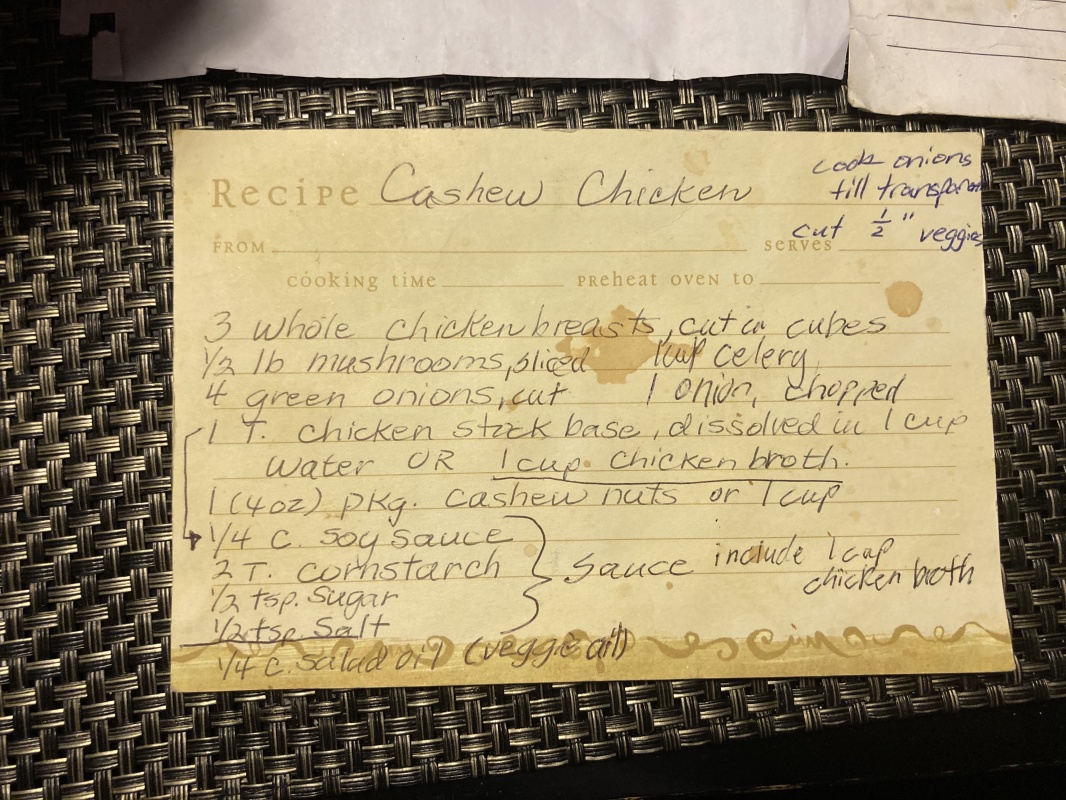 Recipe Cashew Chicken
cook onions
till transparent
cut 1/2" veggies
FROM serves
cooking time preheat oven to
3 whole chicken breasts, cut in cubes
1/2 lb mushrooms, sliced 1 cup celery
4 green onions, cut 1 onion, chopped
1 T. chicken stock base, dissolved in 1 cup
water OR 1 cup chicken broth.
1 (4oz) pkg. cashew nuts or 1 cup
1/4 c. soy sauce
2 T. cornstarch
sauce include 1 cup
chicken broth
1/2 tsp. sugar
1/2 tsp. salt
1/4 c. salad oil (veggie oil)